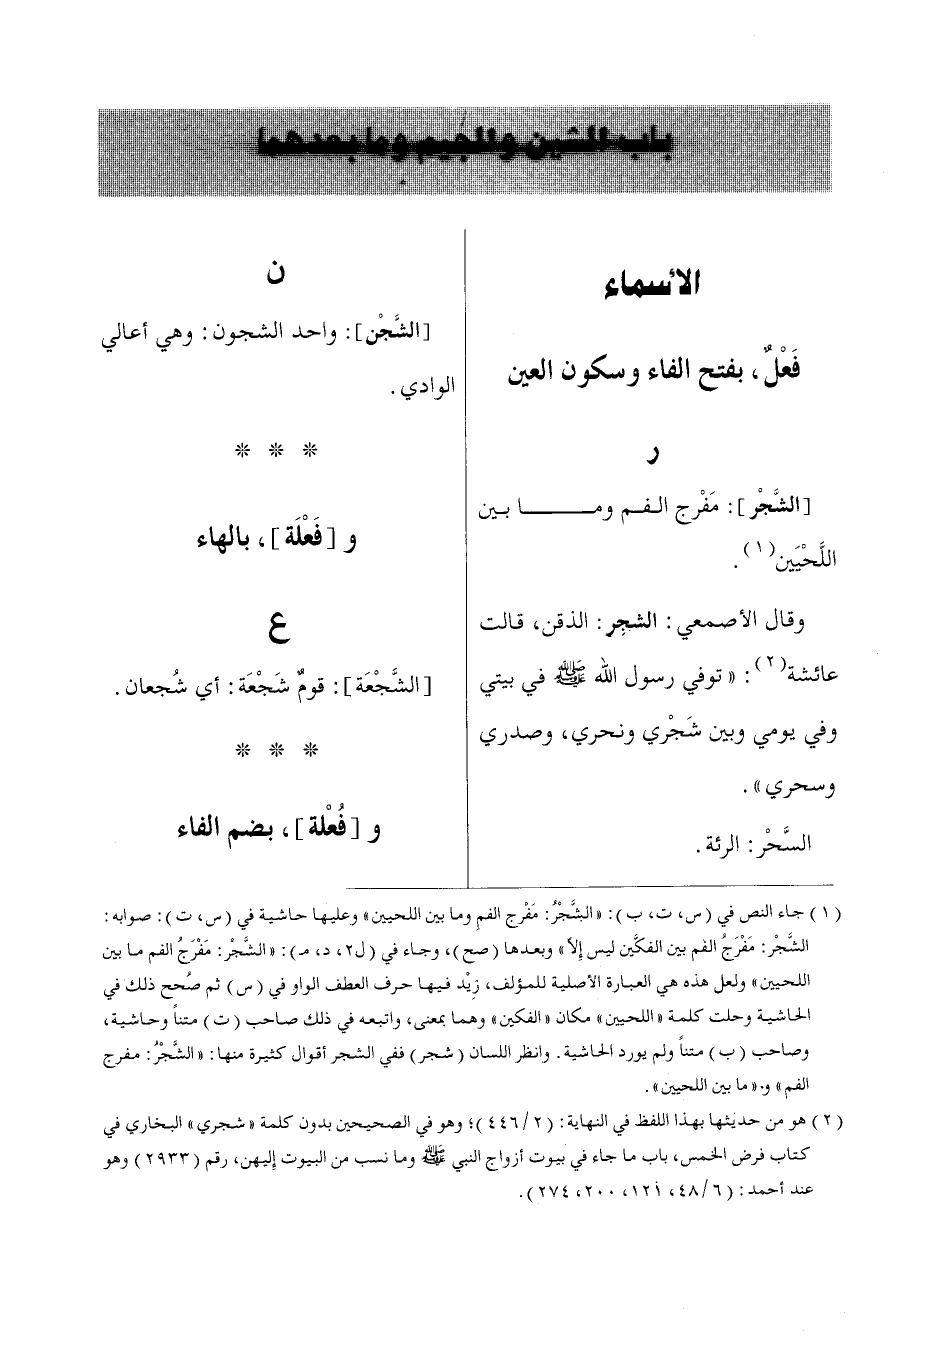 باب الشين والجيم وما بعدهما
الأسماء
فَعْلٌ، بفتح الفاء وسكون العين
ر
[الشَّجْر]: مَفْرج الفم ومـــــا بين
اللَّحْيَين(١).
وقال الأصمعي: الشجر: الذقن، قالت
عائشة(٢): «توفي رسول الله ﷺ في بيتي
وفي يومي وبين شَجْري ونحري، وصدري
وسحري».
السَّحْر: الرئة.
ن
[الشَّجْن]: واحد الشجون: وهي أعالي
الوادي.
* * *
و [فَعْلَة]، بالهاء
ع
[الشَّجْعَة]: قومٌ شَجْعَة: أي شُجعان.
* * *
و [فُعْلة]، بضم الفاء
(١) جاء النص في (س، ت، ب): «الشَّجْرُ: مَفْرج الفم وما بين اللحيين» وعليها حاشية في (س، ت): صوابه:
الشَّجْر: مَفْرَجُ الفم بين الفكَّين ليس إلاَّ» وبعدها (صح)، وجاء في (ل٢، د، م): «الشَّجْر: مَفْرَجُ الفم ما بين
اللحيين» ولعل هذه هي العبارة الأصلية للمؤلف، زِيْد فيها حرف العطف الواو في (س) ثم صُحح ذلك في
الحاشية وحلت كلمة «اللحيين» مكان «الفكين» وهما بمعنى، واتبعه في ذلك صاحب (ت) متناً وحاشية،
وصاحب (ب) متناً ولم يورد الحاشية. وانظر اللسان (شجر) ففي الشجر أقوال كثيرة منها: «الشَّجْرُ: مفرج
الفم» و«ما بين اللحيين».
(٢) هو من حديثها بهذا اللفظ في النهاية: (٤٤٦/٢)؛ وهو في الصحيحين بدون كلمة «شجري» البخاري في
كتاب فرض الخمس، باب ما جاء في بيوت أزواج النبي ﷺ وما نسب من البيوت إليهن، رقم (٢٩٣٣) وهو
عند أحمد: (٤٨/٦، ١٢١، ٢٠٠، ٢٧٤).